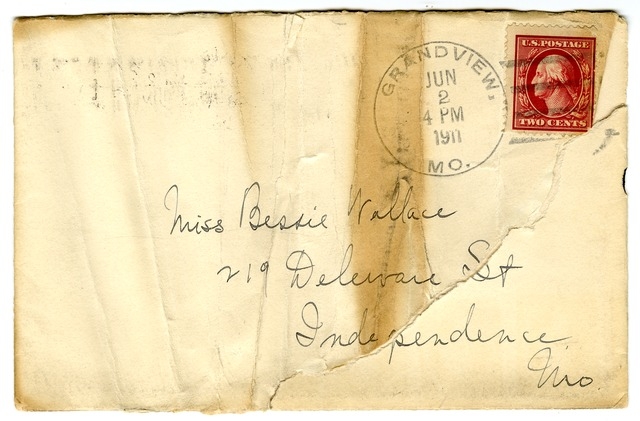 GRANDVIEW,
JUN
2
4 PM
1911
MO.
U.S. POSTAGE
TWO CENTS
Miss Bessie Wallace
219 Deleware St
Independence
Mo.